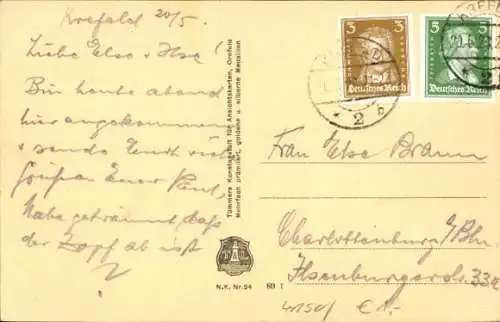 Krefeld 20/5.
Liebe Else & Ilse!
Bin heute abend
hier angekommen
& sende Euch viele
Grüßen Euer Paul,
Habe geträumt, daß
der Zopf ab ist
Tümmers Kunstanstalt für Ansichtskarten, Crefeld
Mehrfach prämiiert, goldene u. silberne Medaillen
N.K. Nr. 54
80 1
3 3
Deutsches Reich
5 5
Deutsches Reich
2 b
Frau Else Braun
Charlottenburg b/Bln.
Ilsenburgerstr. 33a
€ 1.-